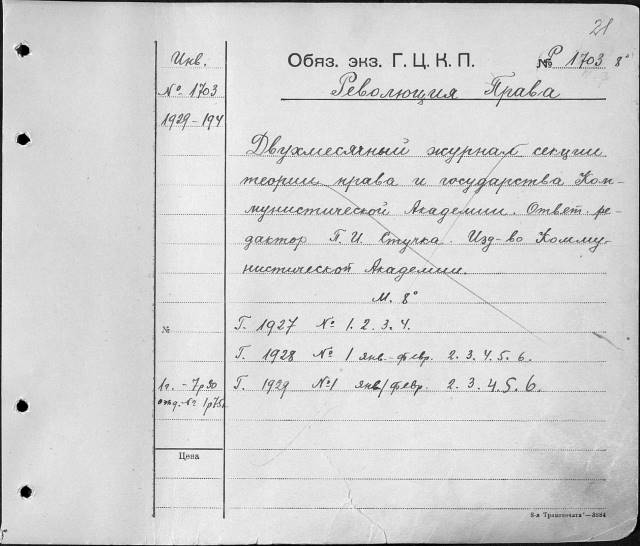 21
Инв.
№ 1703
1929-194
Обяз. экз. Г. Ц. К. П. № Р 1703 8°
Революция Права
Двухмесячный журнал секции
теории права и государства Ком-
мунистической Академии. Ответ. ре-
дактор П. И. Стучка. Изд-во Комму-
нистической Академии.
М. 8°
№
Г. 1927 № 1. 2. 3. 4.
Г. 1928 № 1 янв.-февр. 2. 3. 4. 5. 6.
1 г. - 7 р 50
отд. № 1р75
Г. 1929 № 1 янв/февр. 2. 3. 4. 5. 6.
Цена
8-я Транспечати—3884